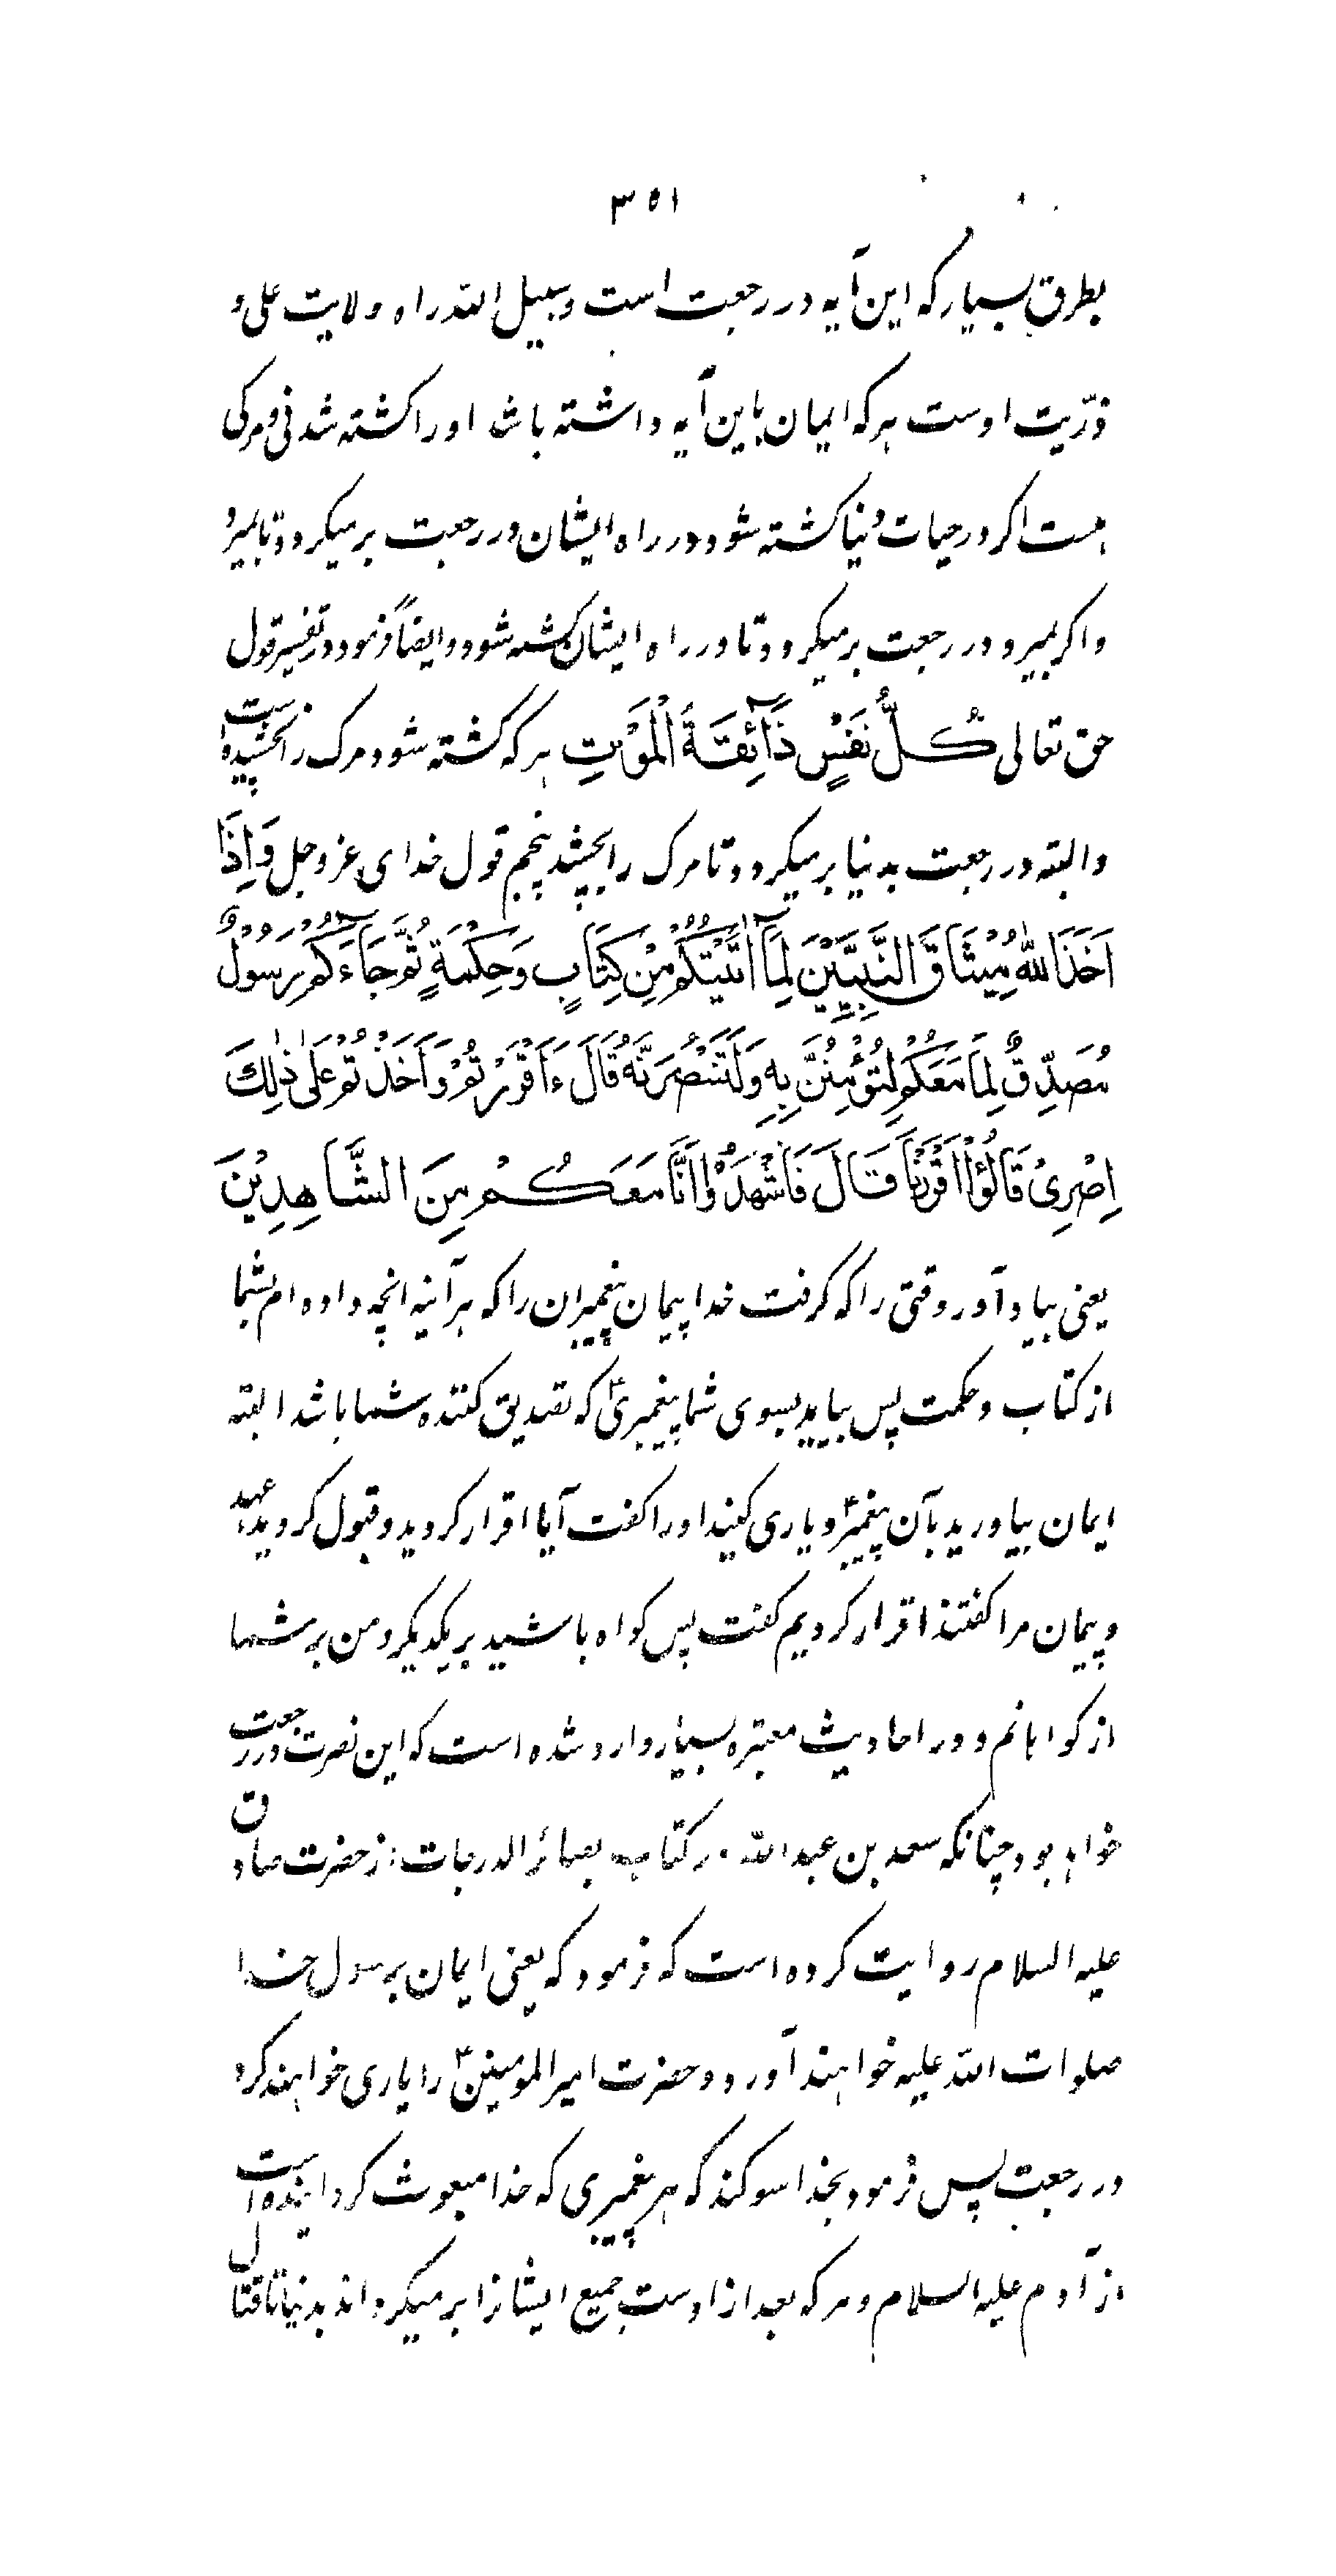 ۳۵۱
بطرق بسیار که این آیه در رجعت است و سبیل الله راه ولایت علی و
ذرّیت اوست هر که ایمان باین آیه داشته باشد او را کشته شدنی و مرکی
هست اکر در حیات دنیا کشته شود در راه ایشان در رجعت بر میکردد تا بمیرد
و اکر بمیرد در رجعت بر میکردد تا در راه ایشان کشته شود و ایضاً فرمود در تفسیر قول
حق تعالی كُلُّ نَفْسٍ ذَآئِقَةُ الْمَوْتِ هر که کشته شود مرک را نچشیده است
و البته در رجعت بدنیا بر میکردد تا مرک را بچشد پنجم قول خدای عز و جل وَاِذَا
اَخَذَ اللّٰهُ مِيْثَاقَ النَّبِيّٖنَ لَمَآ اٰتَيْتُكُمْ مِنْ كِتَابٍ وَحِكْمَةٍ ثُمَّ جَآءَكُمْ رَسُوْلٌ
مُصَدِّقٌ لِمَا مَعَكُمْ لَتُؤْمِنُنَّ بِهٖ وَلَتَنْصُرُنَّهُ قَالَ ءَاَقْرَرْتُمْ وَاَخَذْتُمْ عَلٰى ذٰلِكَ
اِصْرِىْ قَالُوْٓا اَقْرَرْنَا قَالَ فَاشْهَدُوْا وَاَنَا مَعَكُمْ مِنَ الشَّاهِدِيْنَ
یعنی بیاد آور وقتی را که کرفت خدا پیمان پیغمبران را که هر آینه انچه داده ام بشما
از کتاب و حکمت پس بیاید بسوی شما پیغمبری که تصدیق کننده شما باشد البته
ایمان بیاورید بآن پیغمبر و یاری کنید او را کفت آیا اقرار کردید و قبول کردید عهد
و پیمان مرا کفتند اقرار کردیم کفت پس کواه باشید بر یکدیکر و من بر شما
از کواهانم و در احادیث معتبره بسیار وارد شده است که این نصرت در رجعت
خواهد بود چنانکه سعد بن عبدالله در کتاب بصائر الدرجات از حضرت صادق
علیه السلام روایت کرده است که فرمود که یعنی ایمان برسول خدا
صلوات الله علیه خواهند آورد و حضرت امیر المومنین را یاری خواهند کرد
در رجعت پس فرمود بخدا سوکند که هر پیغمبری که خدا مبعوث کردانیده است
از آدم علیه السلام و هر که بعد از اوست جمیع ایشانرا بر میکرداند بدنیا تا قتال